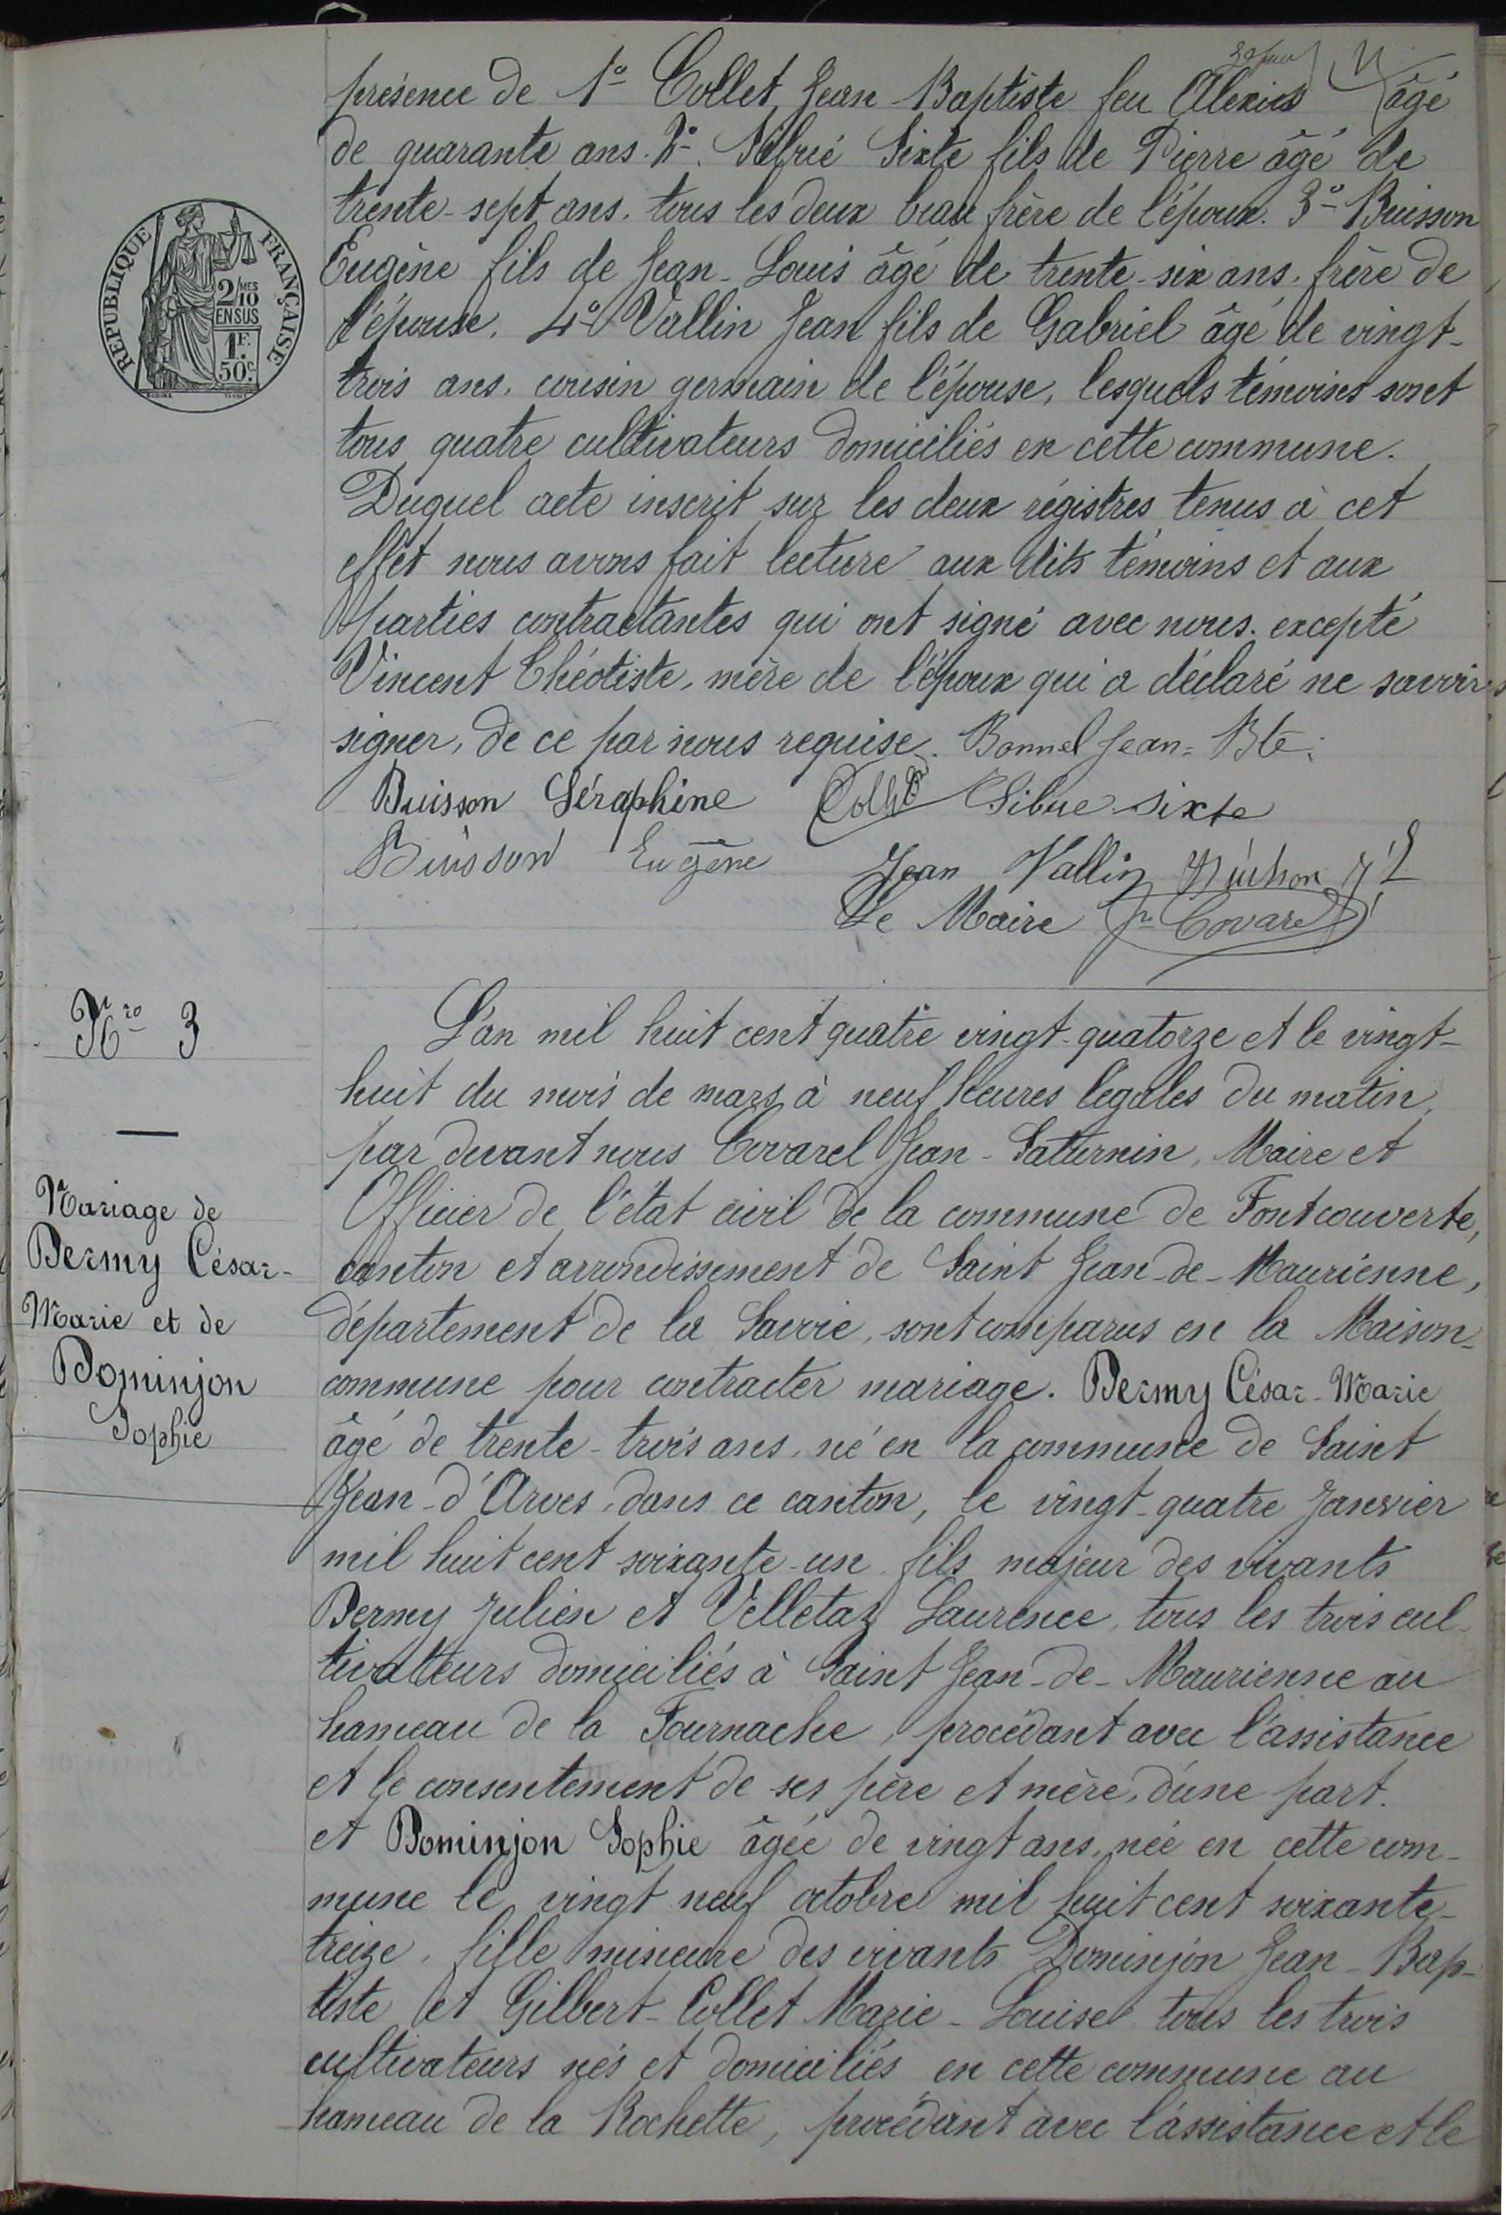 présence de 1° Collet Jean-Baptiste feu Alexis âgé
de quarante ans. 2°. Sibué Sixte fils de Pierre âgé de
trente-sept ans. tous les deux beau frère de l'époux. 3° Buisson
Eugène fils de Jean-Louis âgé de trente-six ans. frère de
l'épouse. 4° Vallin Jean fils de Gabriel âgé de vingt-
trois ans. cousin germain de l'épouse, lesquels témoins sont
tous quatre cultivateurs domiciliés en cette commune.
Duquel acte inscrit sur les deux régistres tenus à cet
effet nous avons fait lecture aux dits témoins et aux
parties contractantes qui ont signé avec nous. excepté
Vincent Théotiste, mère de l'époux qui a déclaré ne savoir
signer, de ce par nous requise. Bonnel Jean-Bte.
Buisson Séraphine Sibue Sixte
Buisson Eugène Jean Vallin
Le Maire Jn Covarel
REPUBLIQUE FRANÇAISE
2/MES
10
EN SUS
1F.
50c.
Nro 3
Mariage de
Dermy César-
Marie et de
Dominjon
Sophie
L'an mil huit cent quatre vingt-quatorze et le vingt-
huit du mois de mars à neuf heures légales du matin,
par devant nous Covarel Jean-Saturnin, Maire et
Officier de l'état civil de la commune de Fontcouverte,
canton et arrondissement de Saint Jean-de-Maurienne,
département de la Savoie, sont comparus en la Maison-
commune pour contracter mariage. Dermy César-Marie
âgé de trente-trois ans, né en la commune de Saint
Jean-d'Arves, dans ce canton, le vingt-quatre Janvier
mil huit cent soixante-un fils majeur des vivants
Dermy Julien et Velletaz Laurence, tous les trois cul-
tivatteurs domiciliés à Saint Jean-de-Maurienne au
hameau de la Fournache, procédant avec l'assistance
et le consentement de ses père et mère, d'une part.
et Dominjon Sophie âgée de vingt ans, née en cette com-
mune le vingt neuf octobre mil huit cent soixante-
treize, fille mineure des vivants Dominjon Jean-Bap-
tiste et Gilbert-Collet Marie-Louise tous les trois
cultivateurs nés et domiciliés en cette commune au
hameau de la Rochette, procédant avec l'assistance et le